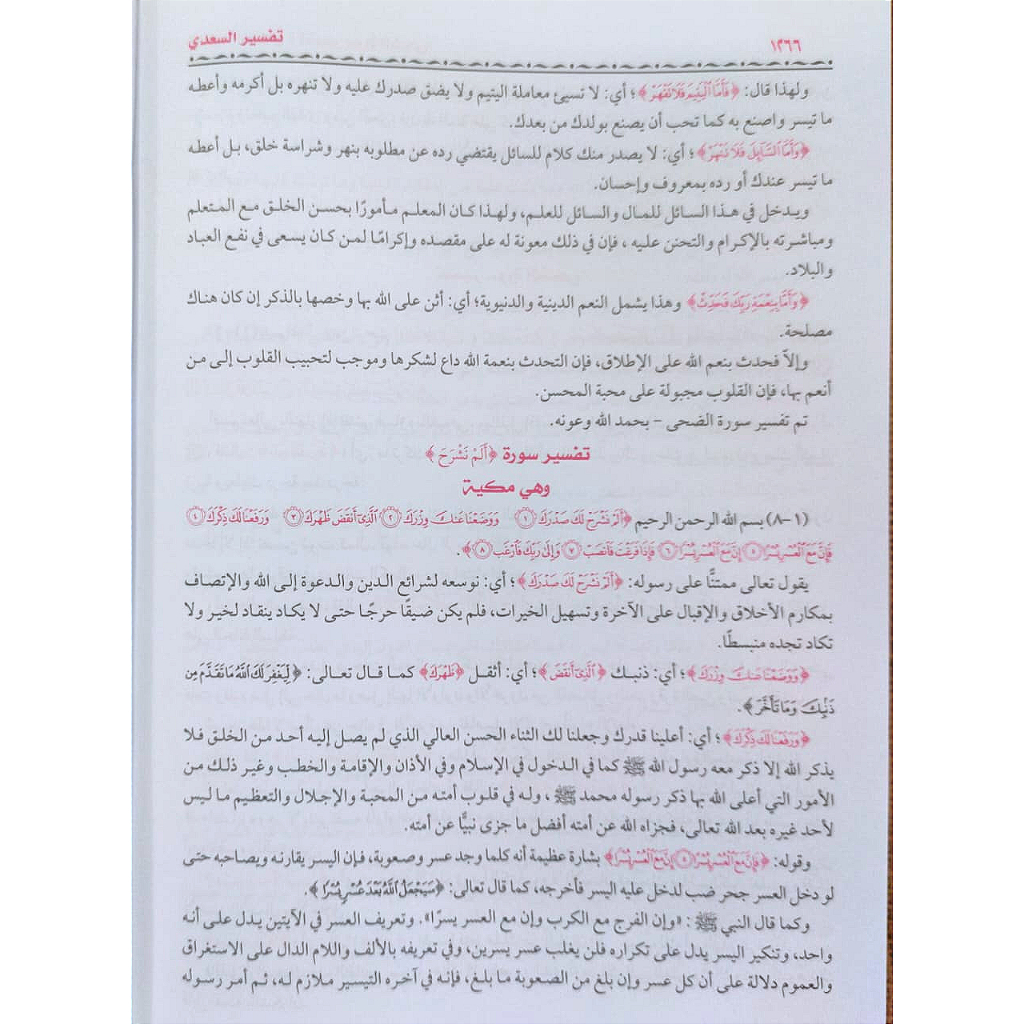 ١٢٦٦ تفسير السعدي
ولهذا قال: ﴿فَأَمَّا ٱلْيَتِيمَ فَلَا تَقْهَرْ﴾؛ أي: لا تسيئ معاملة اليتيم ولا يضق صدرك عليه ولا تنهره بل أكرمه وأعطه
ما تيسر واصنع به كما تحب أن يصنع بولدك من بعدك.
﴿وَأَمَّا ٱلسَّآئِلَ فَلَا تَنْهَرْ﴾؛ أي: لا يصدر منك كلام للسائل يقتضي رده عن مطلوبه بنهر وشراسة خلق، بل أعطه
ما تيسر عندك أو رده بمعروف وإحسان.
ويدخل في هذا السائل للمال والسائل للعلم، ولهذا كان المعلم مأمورًا بحسن الخلق مع المتعلم
ومباشرته بالإكرام والتحنن عليه، فإن في ذلك معونة له على مقصده وإكرامًا لمن كان يسعى في نفع العباد
والبلاد.
﴿وَأَمَّا بِنِعْمَةِ رَبِّكَ فَحَدِّثْ﴾ وهذا يشمل النعم الدينية والدنيوية؛ أي: أثن على الله بها وخصها بالذكر إن كان هناك
مصلحة.
وإلاّ فحدث بنعم الله على الإطلاق، فإن التحدث بنعمة الله داع لشكرها وموجب لتحبيب القلوب إلى من
أنعم بها، فإن القلوب مجبولة على محبة المحسن.
تم تفسير سورة الضحى – بحمد الله وعونه.
تفسير سورة ﴿أَلَمْ نَشْرَحْ﴾
وهي مكية
(١-٨) بسم الله الرحمن الرحيم ﴿أَلَمْ نَشْرَحْ لَكَ صَدْرَكَ ۝١ وَوَضَعْنَا عَنكَ وِزْرَكَ ۝٢ ٱلَّذِىٓ أَنقَضَ ظَهْرَكَ ۝٣ وَرَفَعْنَا لَكَ ذِكْرَكَ ۝٤
فَإِنَّ مَعَ ٱلْعُسْرِ يُسْرًا ۝٥ إِنَّ مَعَ ٱلْعُسْرِ يُسْرًا ۝٦ فَإِذَا فَرَغْتَ فَٱنصَبْ ۝٧ وَإِلَىٰ رَبِّكَ فَٱرْغَب ۝٨﴾.
يقول تعالى ممتنًّا على رسوله: ﴿أَلَمْ نَشْرَحْ لَكَ صَدْرَكَ﴾؛ أي: نوسعه لشرائع الدين والدعوة إلى الله والإتصاف
بمكارم الأخلاق والإقبال على الآخرة وتسهيل الخيرات، فلم يكن ضيقًا حرجًا حتى لا يكاد ينقاد لخير ولا
تكاد تجده منبسطًا.
﴿وَوَضَعْنَا عَنكَ وِزْرَكَ﴾؛ أي: ذنبك ﴿ٱلَّذِىٓ أَنقَضَ﴾؛ أي: أثقل ﴿ظَهْرَكَ﴾ كما قال تعالى: ﴿لِّيَغْفِرَ لَكَ ٱللَّهُ مَا تَقَدَّمَ مِن
ذَنۢبِكَ وَمَا تَأَخَّرَ﴾.
﴿وَرَفَعْنَا لَكَ ذِكْرَكَ﴾؛ أي: أعلينا قدرك وجعلنا لك الثناء الحسن العالي الذي لم يصل إليه أحد من الخلق فلا
يذكر الله إلا ذكر معه رسول الله ﷺ كما في الدخول في الإسلام وفي الأذان والإقامة والخطب وغير ذلك من
الأمور التي أعلى الله بها ذكر رسوله محمد ﷺ، وله في قلوب أمته من المحبة والإجلال والتعظيم ما ليس
لأحد غيره بعد الله تعالى، فجزاه الله عن أمته أفضل ما جزى نبيًّا عن أمته.
وقوله: ﴿فَإِنَّ مَعَ ٱلْعُسْرِ يُسْرًا ۝٥ إِنَّ مَعَ ٱلْعُسْرِ يُسْرًا﴾ بشارة عظيمة أنه كلما وجد عسر وصعوبة، فإن اليسر يقارنه ويصاحبه حتى
لو دخل العسر جحر ضب لدخل عليه اليسر فأخرجه، كما قال تعالى: ﴿سَيَجْعَلُ ٱللَّهُ بَعْدَ عُسْرٍ يُسْرًا﴾.
وكما قال النبي ﷺ: «وإن الفرج مع الكرب وإن مع العسر يسرًا». وتعريف العسر في الآيتين يدل على أنه
واحد، وتنكير اليسر يدل على تكراره فلن يغلب عسر يسرين، وفي تعريفه بالألف واللام الدال على الاستغراق
والعموم دلالة على أن كل عسر وإن بلغ من الصعوبة ما بلغ، فإنه في آخره التيسير ملازم له، ثم أمر رسوله